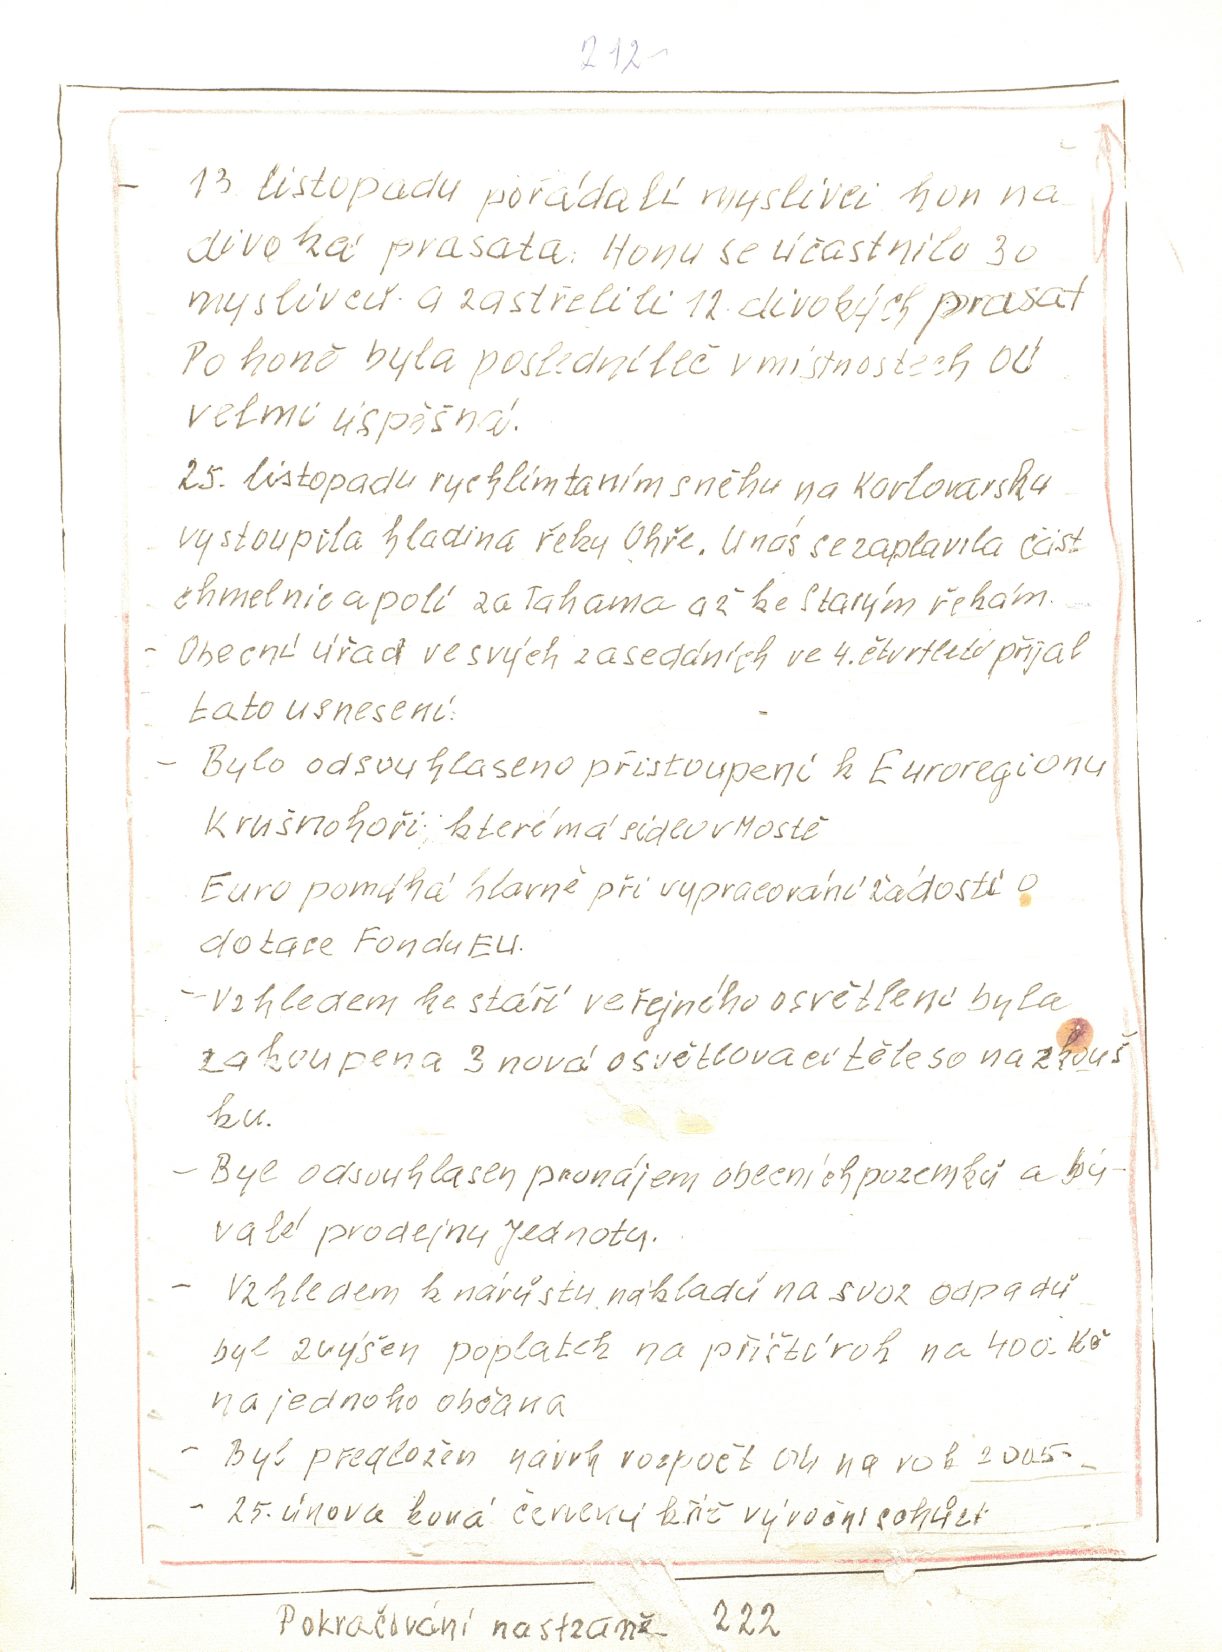 212-
- 13 listopadu pořádali myslivci hon na
divoká prasata. Honu se účastnilo 30
myslivců a zastřelili 12 divokých prasat
Po honě byla poslední leč v místnostech OÚ
velmi úspěšná.
25. listopadu rychlím taním sněhu na Karlovarsku
vystoupila hladina řeky Ohře. U nás se zaplavila část
chmelnic a polí za Tahama až ke Starým řekám.
- Obecní úřad ve svých zasedáních ve 4. čtvrtletí přijal
tato usnesení:
- Bylo odsouhlaseno přistoupení k Euroregionu
Krušnohoří, které má sídlo v Mostě
Euro pomáhá hlavně při vypracování žádostí o
dotace Fondu EU.
- Vzhledem ke stáří veřejného osvětlení byla
zakoupena 3 nová osvětlovací těleso na zkouš
ku.
- Byl odsouhlasen pronájem obecních pozemků a bý-
valé prodejny Jednoty.
- Vzhledem k nárůstu nákladů na svoz odpadů
byl zvýšen poplatek na příští rok na 400.- Kč
na jednoho občana
- Byl předložen návrh rozpočt OÚ na rok 2005.-
- 25. února koná červený kříž výroční schůzi
Pokračování na straně 222